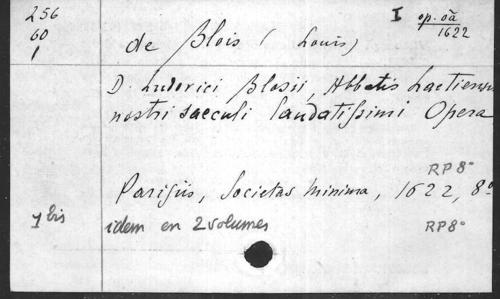 256
60
1
I op. oã
1622
de Blois (Louis)
D. Ludovici Blosii, Abbatis Laetiensis
nostri saeculi laudatissimi Opera
RP 8°
Parisiis, Societas minima, 1622, 8°
1 bis idem en 2 volumes RP 8°